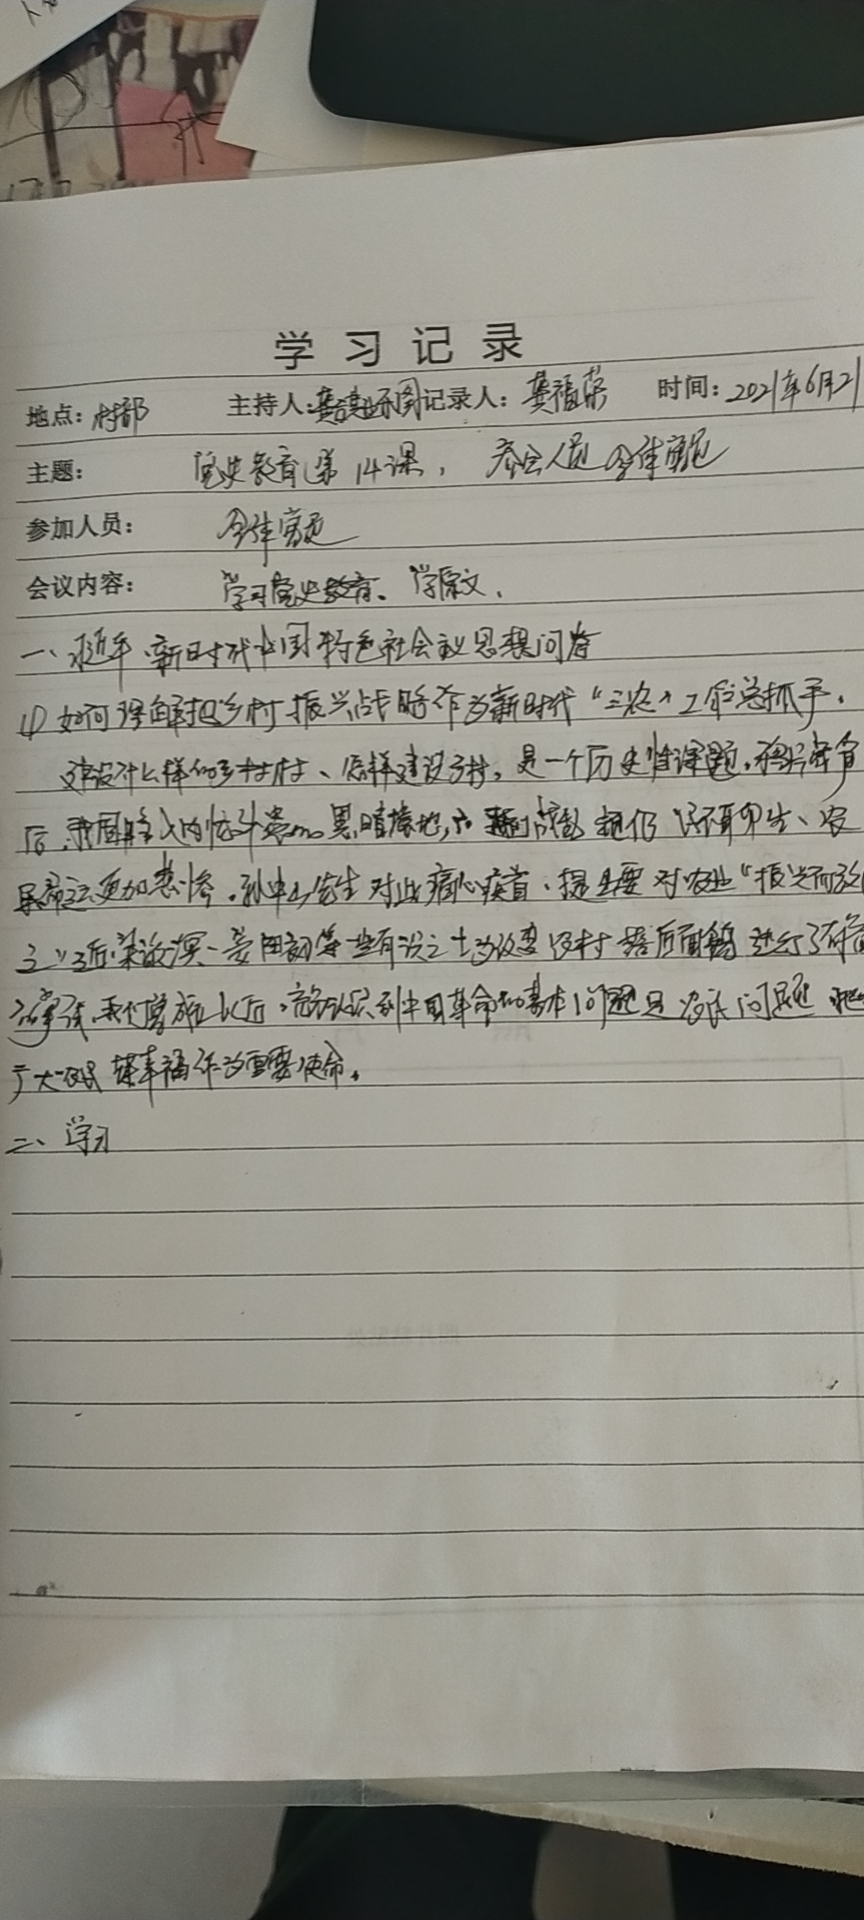 学习记录
地点: 村部 主持人: 记录人: 龚福荣 时间: 2021年6月21
主题: 党史教育第14课, 参会人员 全体党员
参加人员: 全体党员
会议内容: 学习党史教育、学原文、
一、习近平新时代中国特色社会主义思想问答
(1) 如何理解把乡村振兴战略作为新时代“三农”工作总抓手。
建设什么样的乡村、怎样建设乡村，是一个历史性课题。鸦片战争
后，我国 民不聊生、农
民命运更加悲惨。孙中山先生对此痛心疾首，提出要对农业“振兴而
之”。近 梁漱溟、晏阳初等一些有识之士为改变农村落后面貌进行了
我们党成立以后，充分认识到中国革命的基本问题是农民问题 把
广大 谋幸福作为重要使命。
二、学习